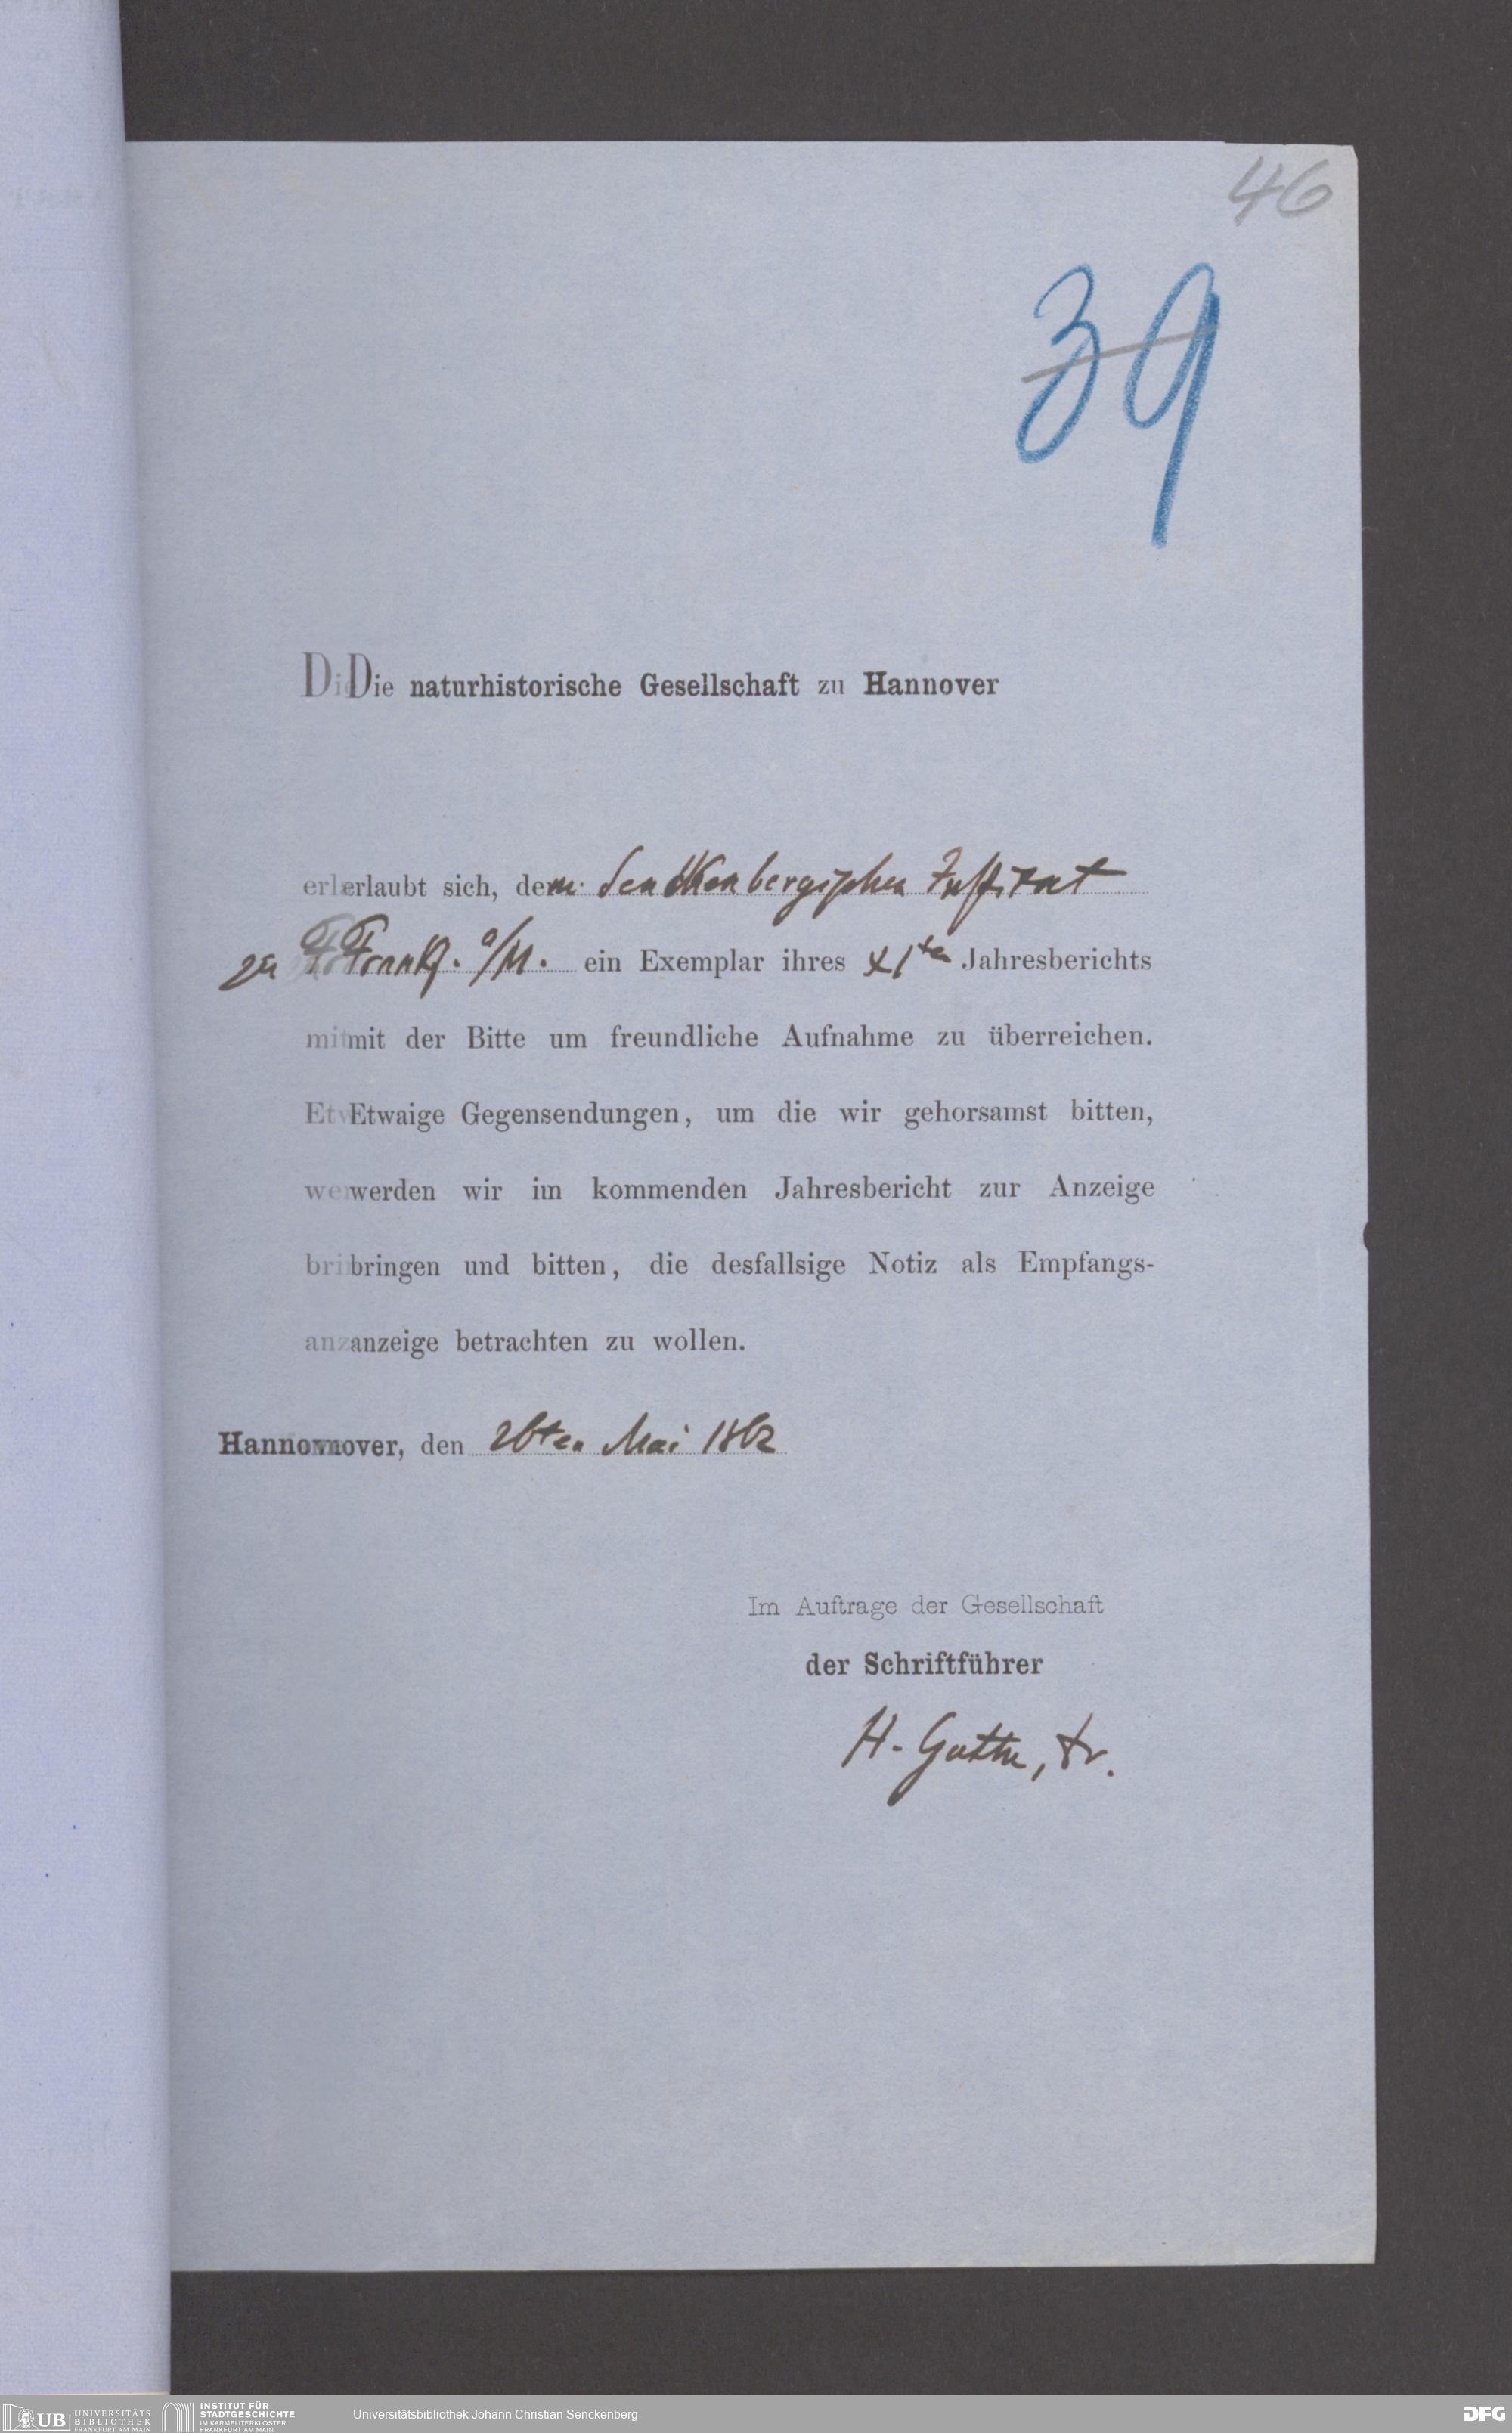 46
39
Die naturhistorische Gesellschaft zu Hannover
erlaubt sich, dem Senckenbergischen Institut
zu Frankf. a/M. ein Exemplar ihres XIten Jahresberichts
mit der Bitte um freundliche Aufnahme zu überreichen.
Etwaige Gegensendungen, um die wir gehorsamst bitten,
werden wir im kommenden Jahresbericht zur Anzeige
bringen und bitten, die desfallsige Notiz als Empfangs-
anzeige betrachten zu wollen.
Hannover, den 26ten Mai 1862
Im Auftrage der Gesellschaft
der Schriftführer
H. Guthe, Dr.
UB UNIVERSITÄTS BIBLIOTHEK FRANKFURT AM MAIN
INSTITUT FÜR STADTGESCHICHTE IM KARMELITERKLOSTER FRANKFURT AM MAIN
Universitätsbibliothek Johann Christian Senckenberg
DFG